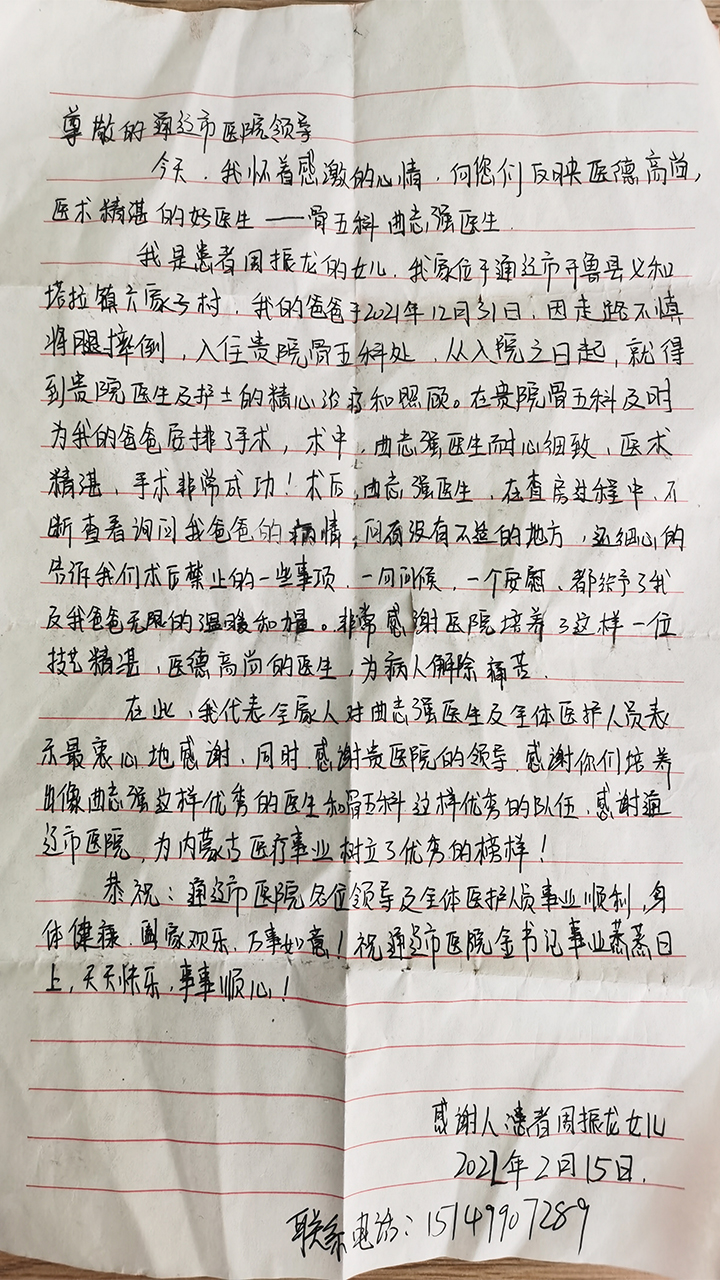 尊敬的通辽市医院领导
今天，我怀着感激的心情，向您们反映医德高尚，
医术精湛的好医生——骨五科曲志强医生．
我是患者周振龙的女儿．我家位于通辽市开鲁县义和
塔拉镇六家子村．我的爸爸于2021年12月31日，因走路不慎
将腿摔倒，入住贵院骨五科处．从入院之日起，就得
到贵院医生及护士的精心治疗和照顾。在贵院骨五科及时
为我的爸爸安排了手术，术中，曲志强医生耐心细致、医术
精湛、手术非常成功！术后，曲志强医生，在查房过程中、不
断查看询问我爸爸的病情，问有没有不适的地方，还细心的
告诉我们术后禁止的一些事项．一句问候，一个安慰、都给予了我
及我爸爸无限的温暖和力量。非常感谢医院培养了这样一位
技艺精湛、医德高尚的医生，为病人解除痛苦．
在此、我代表全家人对曲志强医生及全体医护人员表
示最衷心地感谢、同时感谢贵医院的领导．感谢你们培养
出像曲志强这样优秀的医生和骨五科这样优秀的队伍．感谢通
辽市医院，为内蒙古医疗事业树立了优秀的榜样！
恭祝：通辽市医院各位领导及全体医护人员事业顺利，身
体健康．阖家欢乐．万事如意！祝通辽市医院金书记事业蒸蒸日
上，天天快乐，事事顺心！
感谢人：患者周振龙女儿
2022年2月15日．
联系电话：15149907289